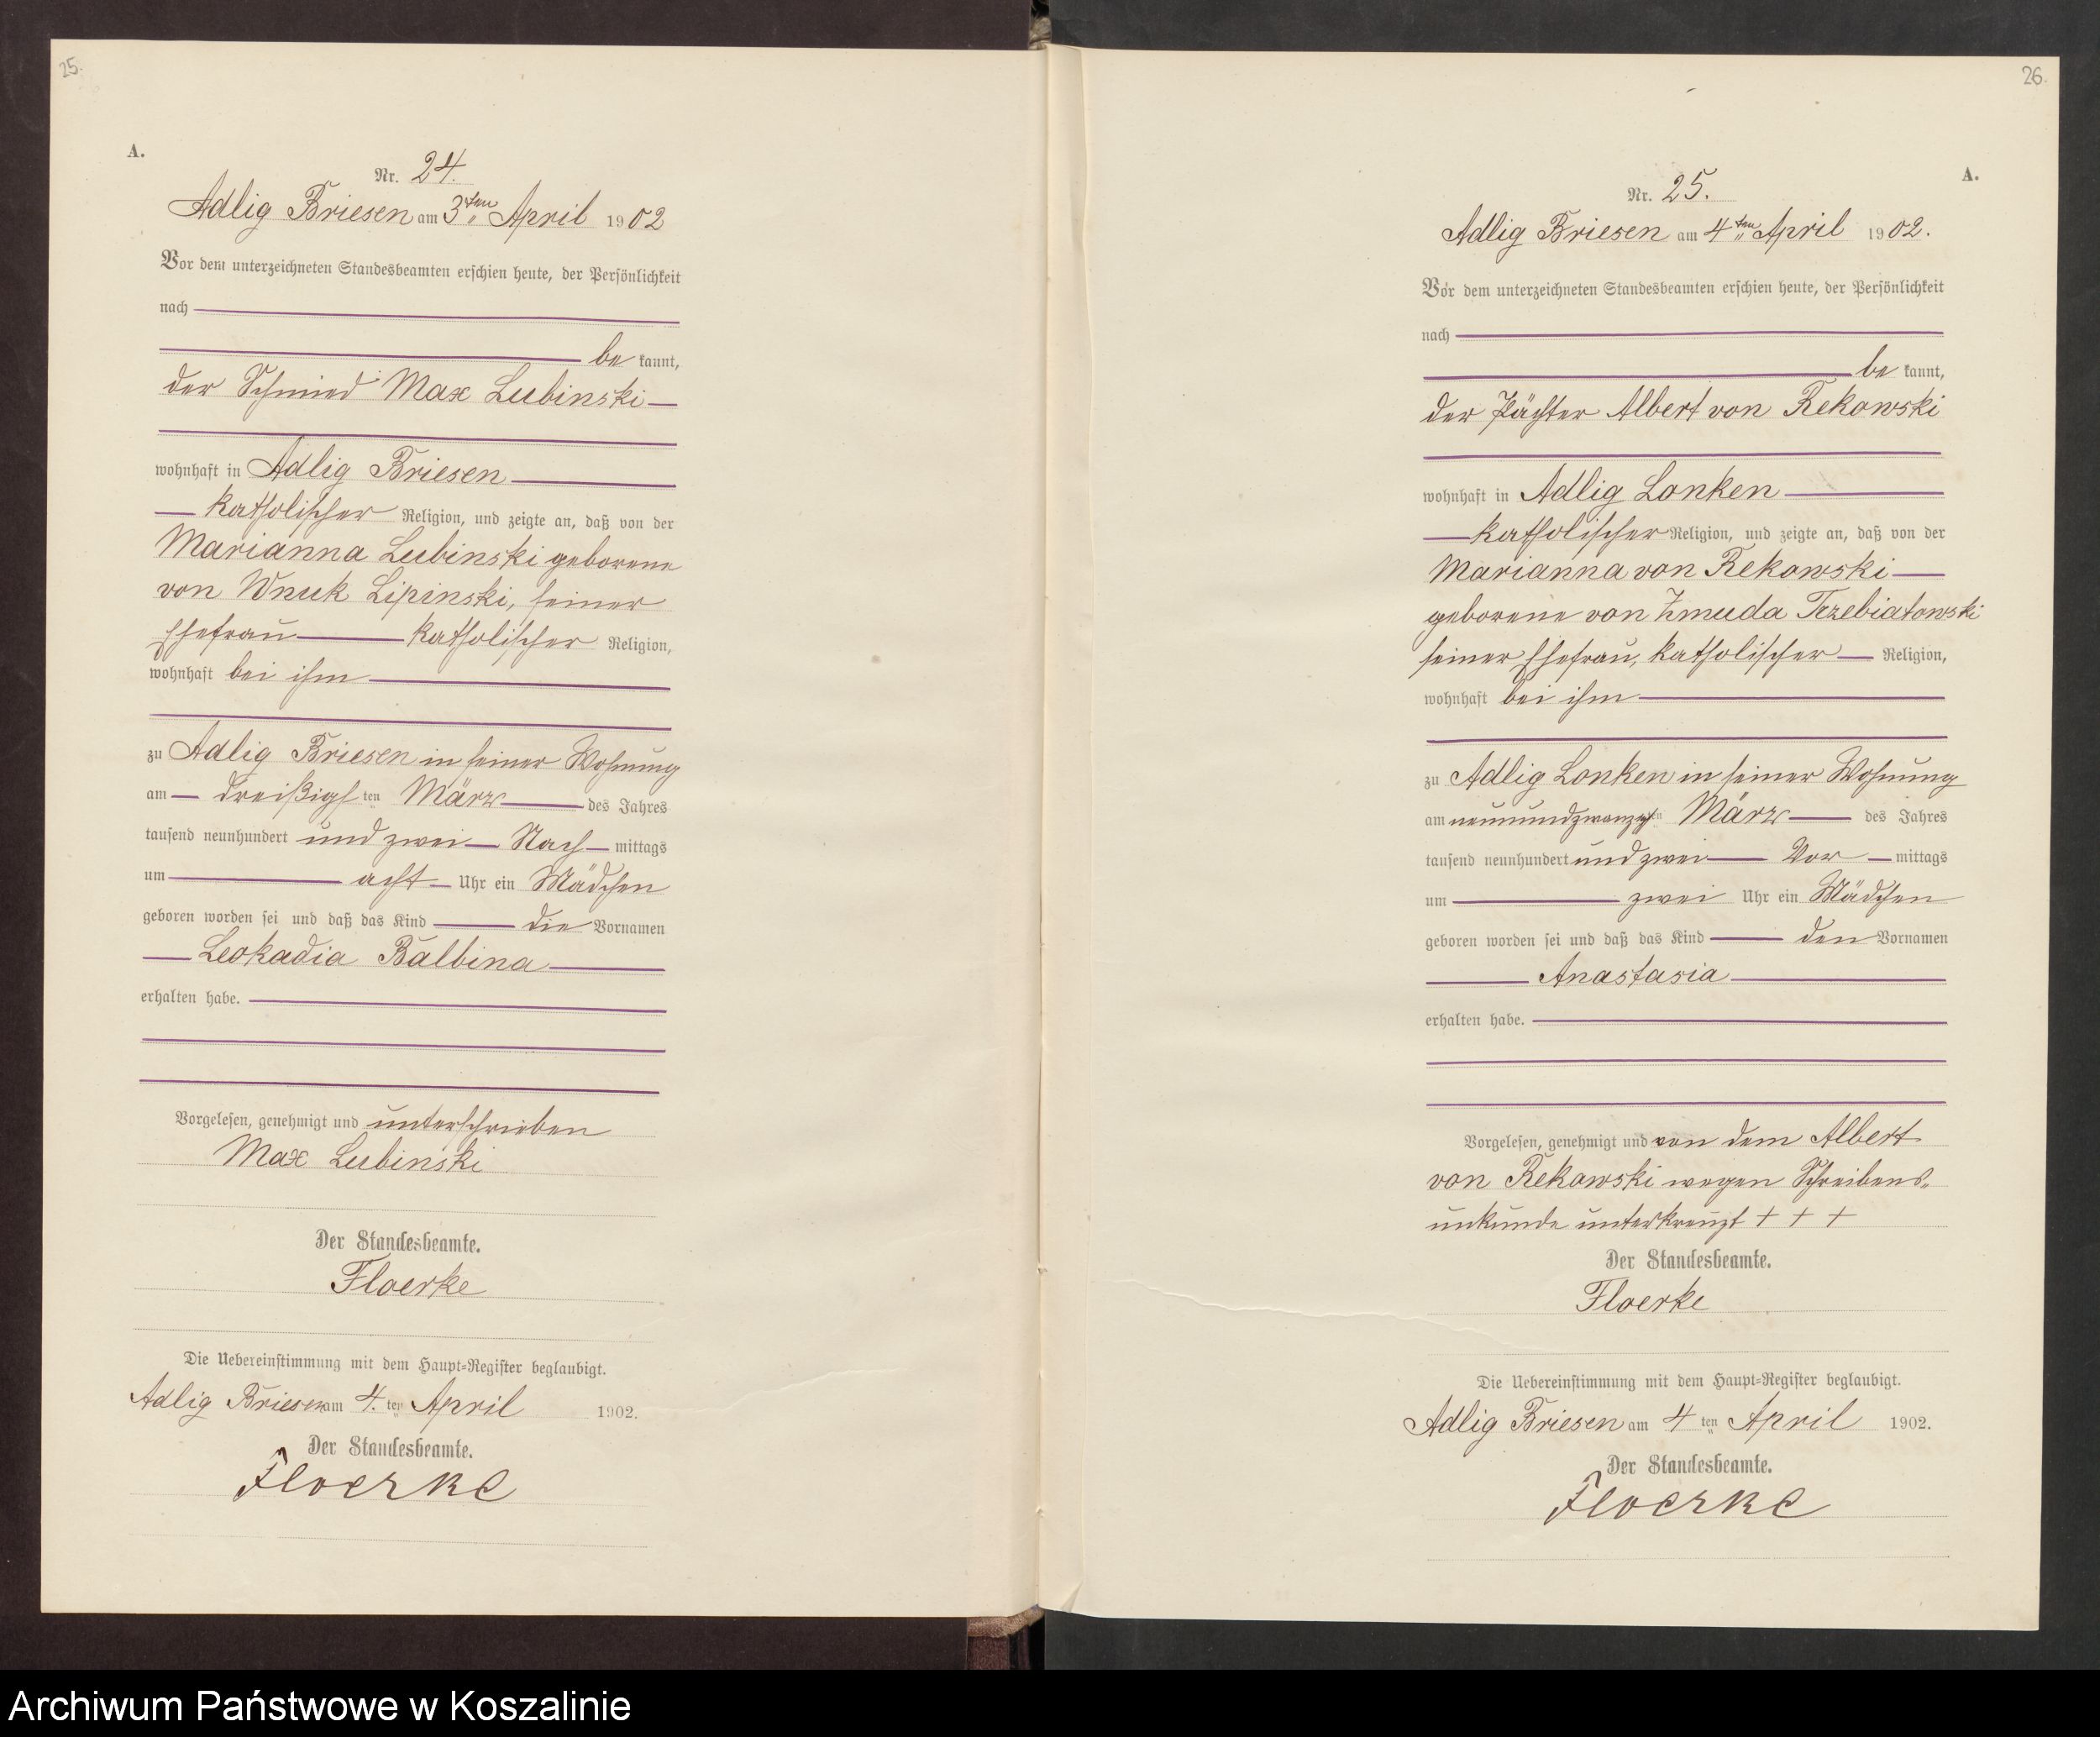 25.
A.
Nr. 24.
Adlig Briesen am 3ten April 1902
Vor dem unterzeichneten Standesbeamten erschien heute, der Persönlichkeit
nach
be kannt,
der Schmied Max Lubinski
wohnhaft in Adlig Briesen
katholischer Religion, und zeigte an, daß von der
Marianna Lubinski geborene
von Wnuk Lipinski, seiner
Ehefrau katholischer Religion,
wohnhaft bei ihm
zu Adlig Briesen in seiner Wohnung
am dreißigsten März des Jahres
tausend neunhundert und zwei Nach mittags
um acht Uhr ein Mädchen
geboren worden sei und daß das Kind die Vornamen
Leokadia Balbina
erhalten habe.
Vorgelesen, genehmigt und unterschrieben
Max Lubinski
Der Standesbeamte.
Floerke
Die Uebereinstimmung mit dem Haupt-Register beglaubigt.
Adlig Briesen am 4. ten April 1902.
Der Standesbeamte.
Floerke
26.
A.
Nr. 25.
Adlig Briesen am 4ten April 1902.
Vor dem unterzeichneten Standesbeamten erschien heute, der Persönlichkeit
nach
be kannt,
der Pächter Albert von Rekowski
wohnhaft in Adlig Lonken
katholischer Religion, und zeigte an, daß von der
Marianna von Rekowski
geborene von Zmuda Trzebiatowski
seiner Ehefrau, katholischer Religion,
wohnhaft bei ihm
zu Adlig Lonken in seiner Wohnung
am neunundzwanzigsten März des Jahres
tausend neunhundert und zwei Vor mittags
um zwei Uhr ein Mädchen
geboren worden sei und daß das Kind den Vornamen
Anastasia
erhalten habe.
Vorgelesen, genehmigt und von dem Albert
von Rekowski wegen Schreibens-
unkunde unterkreuzt + + +
Der Standesbeamte.
Floerke
Die Uebereinstimmung mit dem Haupt-Register beglaubigt.
Adlig Briesen am 4 ten April 1902.
Der Standesbeamte.
Floerke
Archiwum Państwowe w Koszalinie